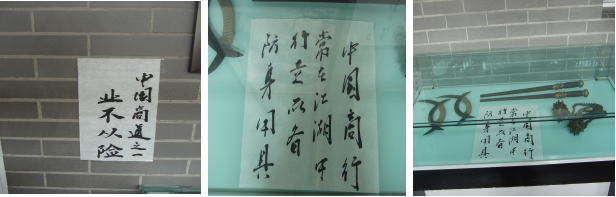 中国商道之一
业不从险
中国商行
常在江湖中
行走所备
防身用具
中国商行
常在江湖中
行走所备
防身用具